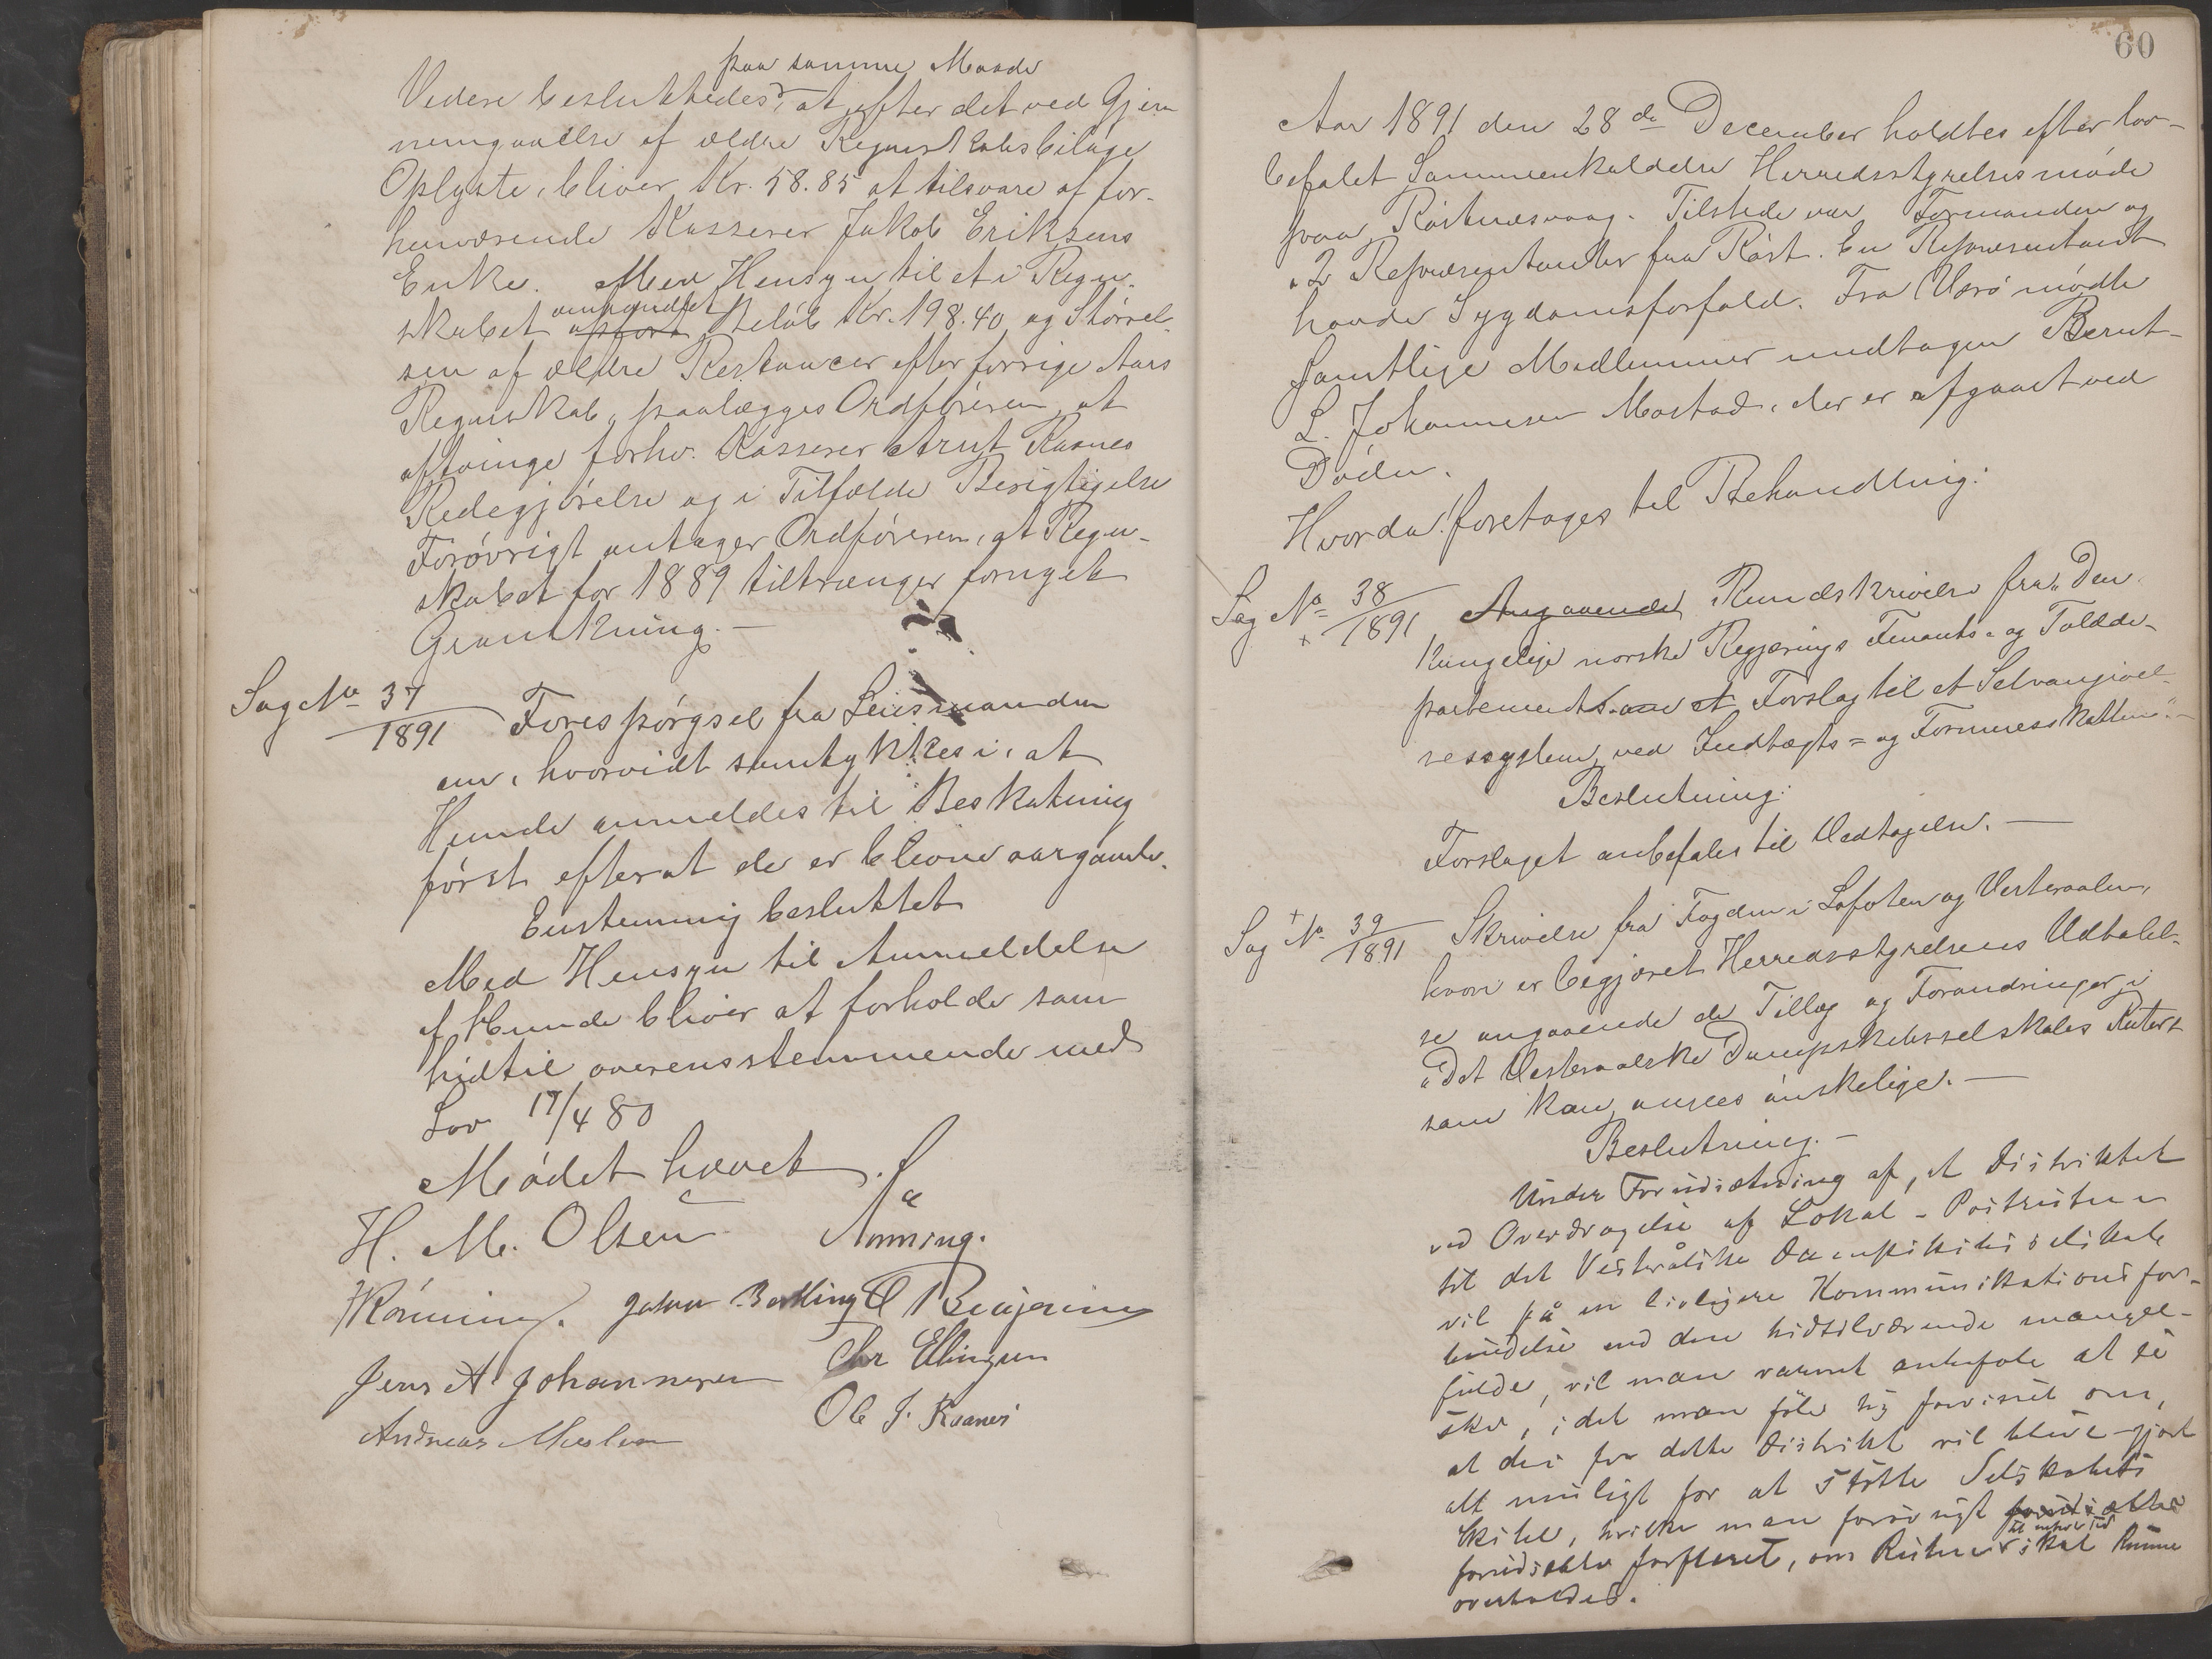 paa samme Maade
Videre besluttedes, at efter det ved Gjen
nemgaaelse af ældre Regnskabsbilage
Oplyste, bliver Kr. 58.85 at tilsvare af for-
henværende Kasserer Jakob Eriksens
Enke. Med Hensyn til et i Regn-
skabet opført Beløb Kr. 198.40 og Størrel-
sen af ældre Restancer efter forrige Aars
Regnskab, paalægges Ordføreren at
aftvinge forhv. Kasserer Arnt Kvanes
Redegjørelse og i Tilfælde Berigtigelse
Forøvrigt antager Ordføreren, at Regn-
skabet for 1889 tiltrænger fornyet
Granskning. —
Sag No 37/1891 Forespørgsel fra Lensmanden
om, hvorvidt samtykkes i, at
Hunde anmeldes til Beskatning
først efterat de er blevne aargamle.
Enstemmig besluttet
Med Hensyn til Anmeldelse
af Hunde bliver at forholde som
hidtil overensstemmende med
Lov 17/4 80
Mødet hævet.
H. M. Olsen
Rønning.
Johan Berthling O Benjamins
Jens A Johannesen Chr Ellingsen
Ole J. Kvanes
Andreas
60
Aar 1891 den 28de December holdtes efter lov-
befalet Sammenkaldelse Herredsstyrelsesmøde
paa Røstnæsvaag. Tilstede var Formanden og
2 Repræsentanter fra Røst. En Repræsentant
havde Sygdomsforfald. Fra Værø mødte
samtlige Medlemmer undtagen Bernt
L. Johannesen Mostad, der er afgaaet ved
Døden.
Hvorda! foretages til Behandling:
Sag No 38/1891 Angaaende Rundskrivelse fra "Den
kongelige norske Regjerings Finants- og Toldde-
partement om et Forslag til et Selvangivel-
sessystem ved Indtægts- og Formuesskatten". —
Beslutning:
Forslaget anbefales til Vedtagelse. —
Sag No 39/1891 Skrivelse fra Fogden i Lofoten og Vesteraalen,
hvori er begjæret Herredsstyrelsens Udtalel-
se angaaende de Tillæg og Forandringer i
"Det Vesteraalske Dampskibsselskabs Ruter"
som kan ansees ønskelige. —
Beslutning. —
Under Forudsætning af, at Distriktet
ved Overdragelse af Lokal-Postruten
til det Vesterålske Dampskibsselskab
vil få en livligere Kommunikationsfor-
bindelse end den hidtilværende mangel-
fulde, vil man varmt anbefale at så
sker, idet man føler sig forvisset om,
at der for dette Distrikt vil blive gjort
alt muligt for at støtte Selskabets
Skibe, hvilke man forøvrigt forudsætter
forudsætter forstæret, om Ruterne skal kunne
overholdes.